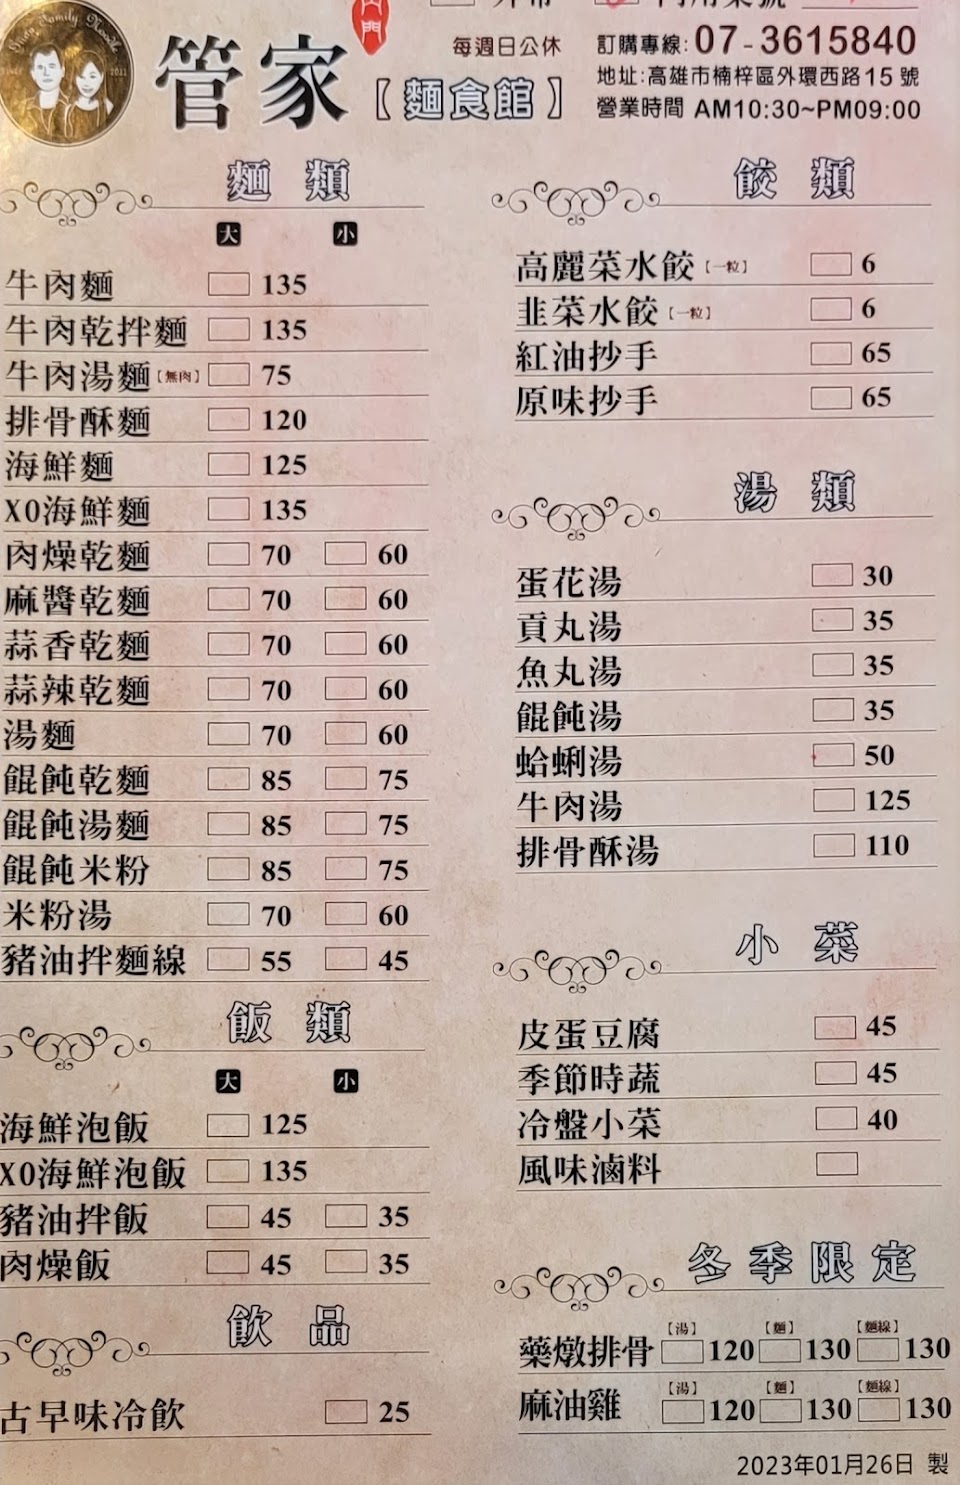 管家
【麵食館】
每週日公休
訂購專線:07-3615840
地址:高雄市楠梓區外環西路15號
營業時間 AM10:30~PM09:00
麵類
大 小
牛肉麵 135
牛肉乾拌麵 135
牛肉湯麵【無肉】 75
排骨酥麵 120
海鮮麵 125
XO海鮮麵 135
肉燥乾麵 70 60
麻醬乾麵 70 60
蒜香乾麵 70 60
蒜辣乾麵 70 60
湯麵 70 60
餛飩乾麵 85 75
餛飩湯麵 85 75
餛飩米粉 85 75
米粉湯 70 60
豬油拌麵線 55 45
飯類
大 小
海鮮泡飯 125
XO海鮮泡飯 135
豬油拌飯 45 35
肉燥飯 45 35
飲品
古早味冷飲 25
餃類
高麗菜水餃【一粒】 6
韭菜水餃【一粒】 6
紅油抄手 65
原味抄手 65
湯類
蛋花湯 30
貢丸湯 35
魚丸湯 35
餛飩湯 35
蛤蜊湯 50
牛肉湯 125
排骨酥湯 110
小菜
皮蛋豆腐 45
季節時蔬 45
冷盤小菜 40
風味滷料
冬季限定
藥燉排骨 【湯】120 【麵】130 【麵線】130
麻油雞 【湯】120 【麵】130 【麵線】130
2023年01月26日 製